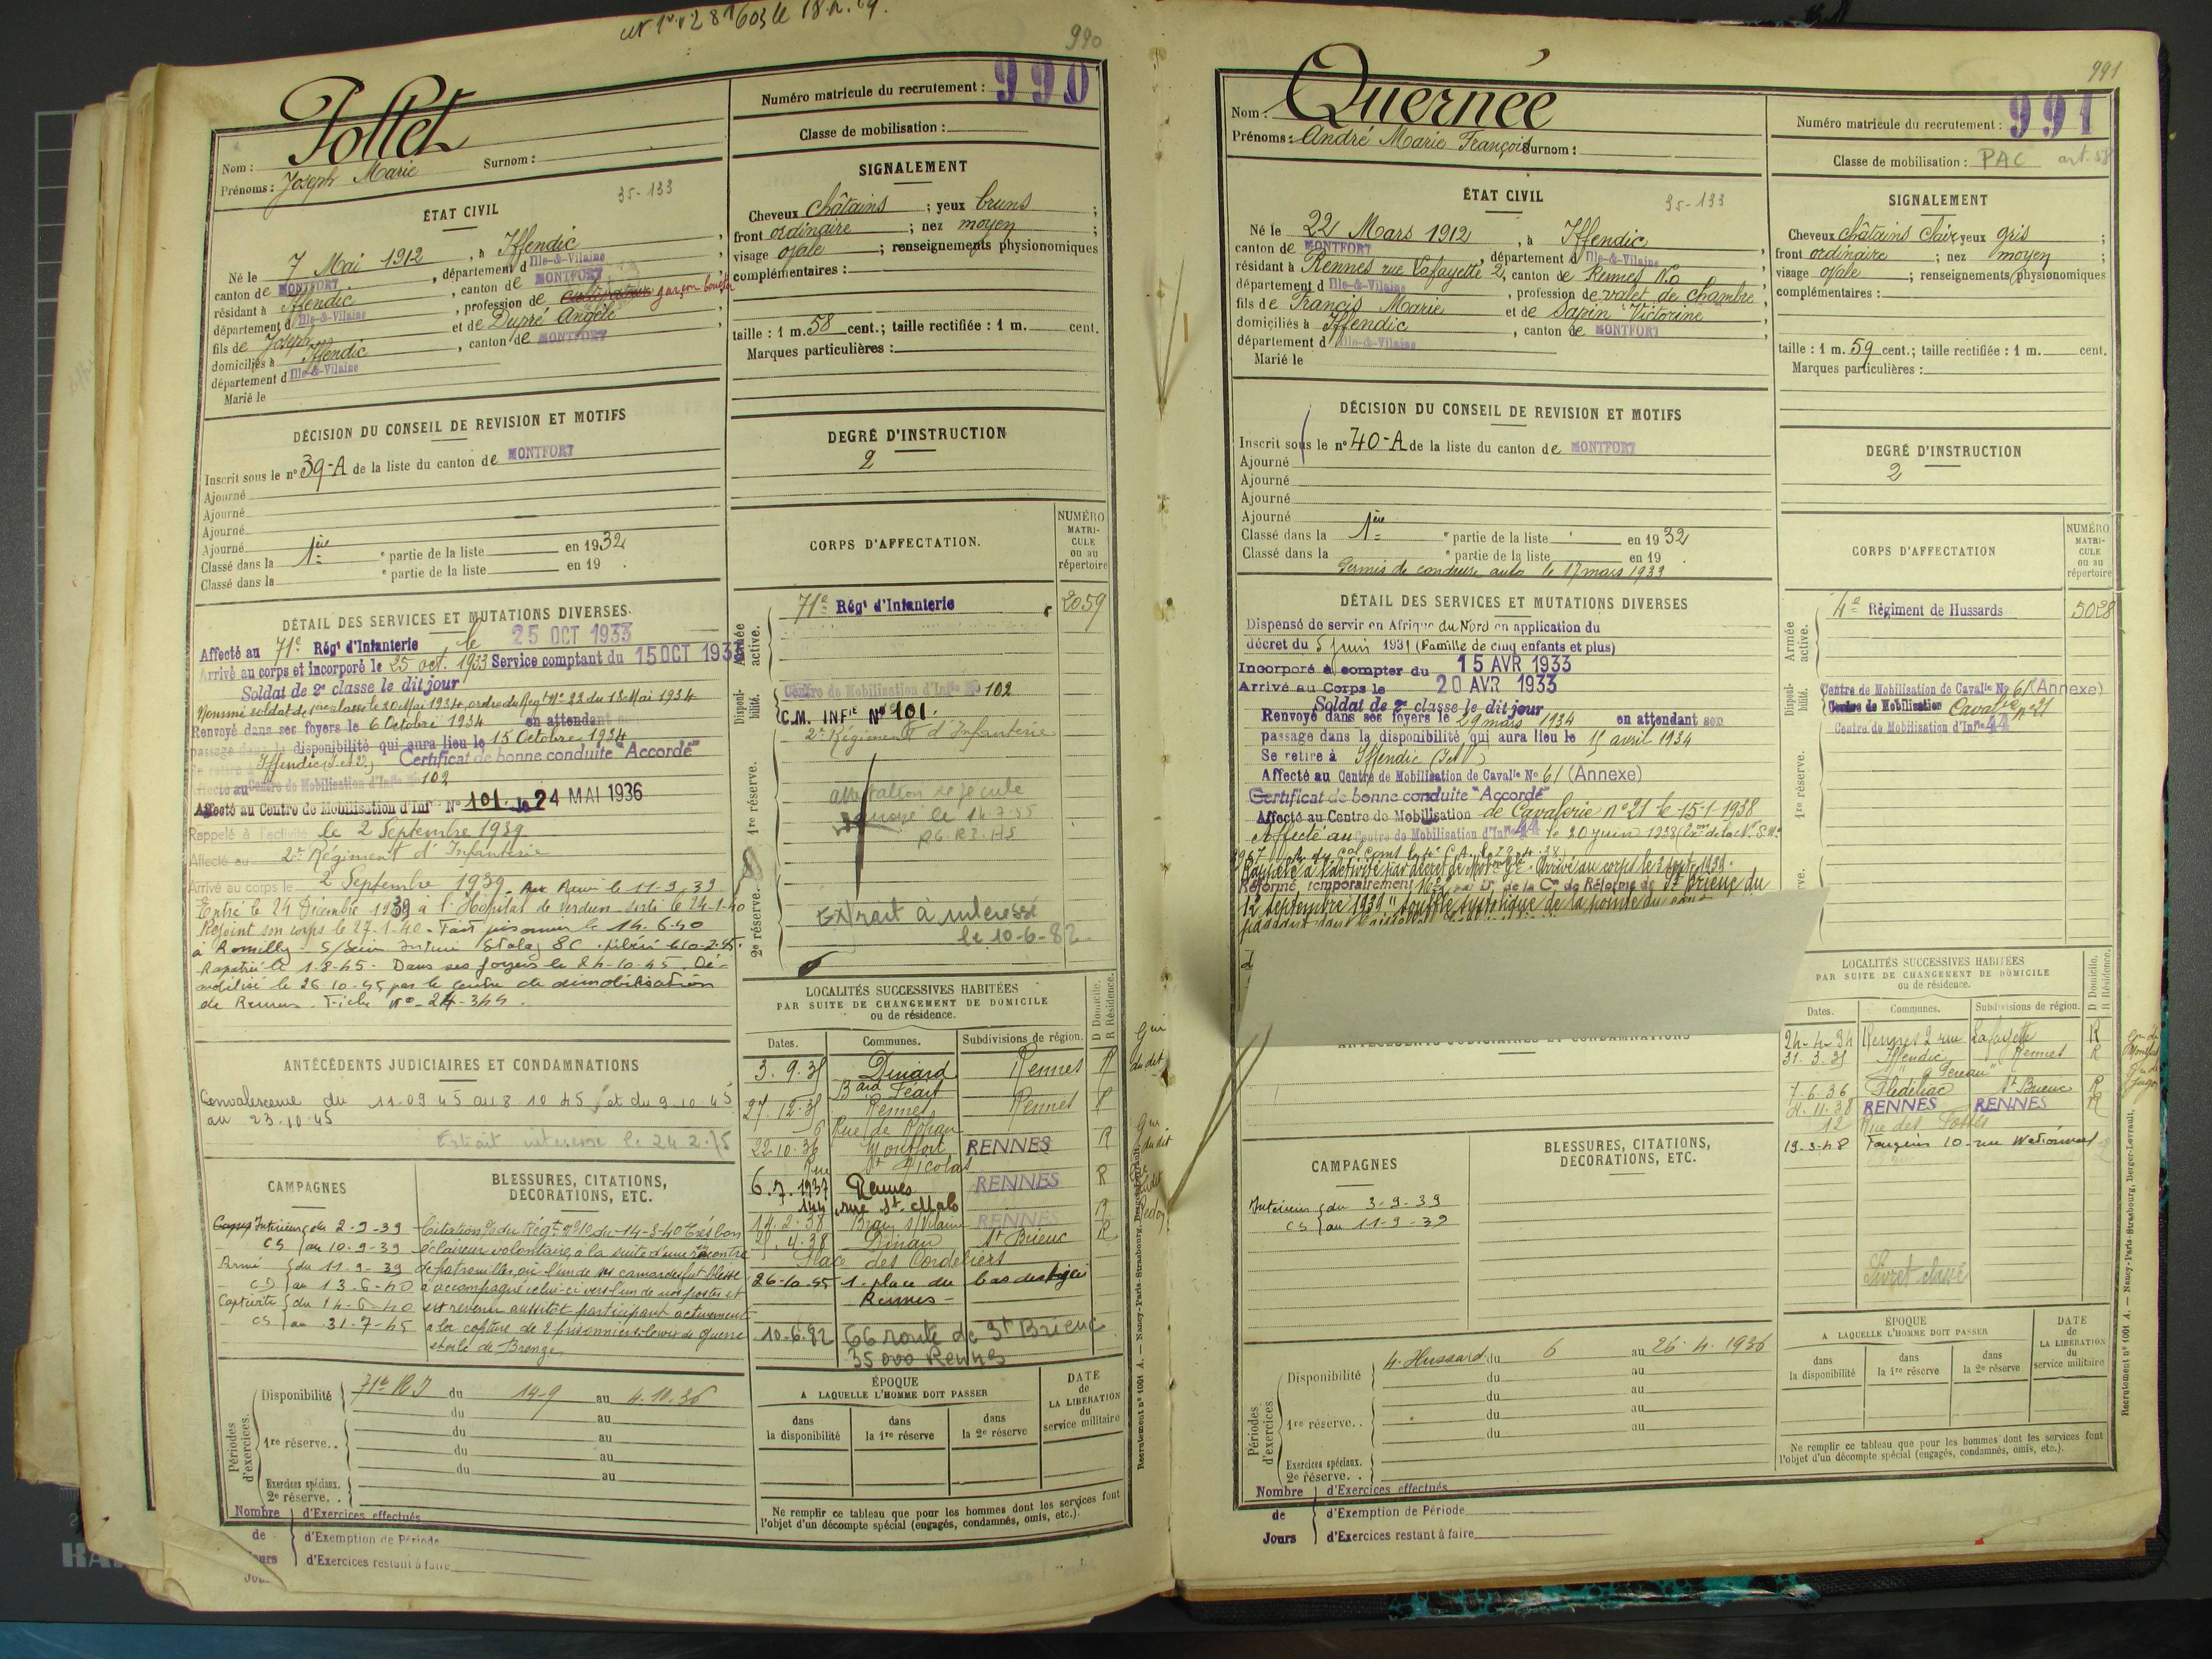 990
Pollet
Nom :
Prénoms : Joseph Marie Surnom :
Numéro matricule du recrutement : 990
Classe de mobilisation :
ÉTAT CIVIL
35-133
Né le 7 Mai 1912, à Iffendic,
canton de MONTFORT, département d Ille-&-Vilaine
résidant à Iffendic, canton de MONTFORT
département d Ille-&-Vilaine, profession de garçon boucher
fils de Joseph et de Dupré Angèle
domiciliés à Iffendic, canton de MONTFORT
département d Ille-&-Vilaine
Marié le
SIGNALEMENT
Cheveux châtains ; yeux bruns ;
front ordinaire ; nez moyen ;
visage ovale ; renseignements physionomiques
complémentaires :
taille : 1 m. 58 cent.; taille rectifiée : 1 m. cent.
Marques particulières :
DÉCISION DU CONSEIL DE REVISION ET MOTIFS
Inscrit sous le n° 39-A de la liste du canton de MONTFORT
Ajourné
Ajourné
Ajourné
Ajourné
Classé dans la 1ère partie de la liste en 1932
Classé dans la e partie de la liste en 19 .
DEGRÉ D'INSTRUCTION
2
DÉTAIL DES SERVICES ET MUTATIONS DIVERSES.
Affecté au 71e Rég' d'Infanterie le 25 OCT 1933
Arrivé au corps et incorporé le 25 oct. 1933 Service comptant du 15 OCT 193
Soldat de 2e classe le dit jour
Nommé soldat de 1ère classe le 20 Mai 1934, ordre du Régt N° 22 du 18 Mai 1934
Renvoyé dans ses foyers le 6 Octobre 1934 en attendant
passage dans la disponibilité qui aura lieu le 15 Octobre 1934
Se retire à Iffendic (I.et.V.) Certificat de bonne conduite "Accordé"
Affecté au Centre de Mobilisation d'Infie N° 102
Affecté au Centre de Mobilisation d'Infie N° 101. le 24 MAI 1936
Rappelé à l'activité le 2 Septembre 1939
Affecté au 2e Régiment d'Infanterie
Arrivé au corps le 2 Septembre 1939. Aux Armées le 11-9-39
Entré le 24 Décembre 1939 à l'Hôpital de Verdun sorti le 24-1-40
Rejoint son corps le 27-1-40. Fait prisonnier le 14.6.40
à Romilly s/Seine Interné Stalag 8C. libéré le 10-2-45.
Rapatrié le 1-8-45. Dans ses foyers le 24-10-45. Dé-
mobilisé le 26.10.45 par le centre de démobilisation
de Rennes. Fiche N°
CORPS D'AFFECTATION.
NUMÉRO MATRICULE ou au répertoire
Armée active.
71e Rég' d'Infanterie 2059
Disponibilité.
Centre de Mobilisation d'Infie N° 102
C.M. INFIE N° 101.
2e Régiment d'Infanterie
1re réserve.
2e réserve.
Extrait à intéressé
le 10-6-82
ANTÉCÉDENTS JUDICIAIRES ET CONDAMNATIONS
Convalescence du 11.09 45 au 8 10 45, et du 9.10.45
au 23.10.45
Extrait intéressé le 24.2.75
LOCALITÉS SUCCESSIVES HABITÉES
PAR SUITE DE CHANGEMENT DE DOMICILE
ou de résidence.
D Domicile. R Résidence.
Dates. Communes. Subdivisions de région.
3.9.35 Dinard Rennes R
Bard Féart
27.12.35 Rennes Rennes R
6 Rue de Rohan
22.10.36 Montfort RENNES R
Rue St Nicolas
6.7.1937 Rennes RENNES R
144 rue St. Malo
Brain s/Vilaine RENNES R
Dinan St Brieuc R
Place des Cordeliers
26-10-45 1. place du bas des Lices
Rennes
10-6-82 66 route de St Brieuc
35000 Rennes
CAMPAGNES
Intérieur du 2-9-39
CS au 10-9-39
Armée du 11-9-39
CD au 13-6-40
Captivité du 14-6-40
CS au 31-7-45
BLESSURES, CITATIONS, DÉCORATIONS, ETC.
Citation O/ du Régt N° 10 du 14-3-40 Très bon
éclaireur volontaire, à la suite d'une rencontre
de patrouilles, où l'un de ses camarades fut blessé
a accompagné celui-ci vers l'un de nos postes et
est revenu aussitôt participant activement
à la capture de 2 prisonniers. Croix de Guerre
étoile de Bronze
Périodes d'exercices.
Disponibilité 71e R I du 14-9 au 4.10.36
1re réserve..
Exercices spéciaux.
2e réserve. .
ÉPOQUE
A LAQUELLE L'HOMME DOIT PASSER
dans la disponibilité dans la 1re réserve dans la 2e réserve
DATE de LA LIBÉRATION du service militaire
Ne remplir ce tableau que pour les hommes dont les services font
l'objet d'un décompte spécial (engagés, condamnés, omis, etc.).
Nombre de Jours
d'Exercices effectués
d'Exemption de Période
d'Exercices restant à faire
Recrutement n° 1001 A. — Nancy-Paris-Strasbourg, Berger-Levrault.
991
Nom : Quernée
Prénoms : André Marie François Surnom :
Numéro matricule du recrutement : 991
Classe de mobilisation : PAC art. 58
ÉTAT CIVIL
35-133
Né le 22 Mars 1912, à Iffendic
canton de MONTFORT, département d Ille-&-Vilaine
résidant à Rennes rue Lafayette 2, canton de Rennes N.O
département d Ille-&-Vilaine, profession de valet de chambre,
fils de Francis Marie et de Sapin Victorine
domiciliés à Iffendic, canton de MONTFORT
département d Ille-&-Vilaine
Marié le
SIGNALEMENT
Cheveux châtains clair yeux gris ;
front ordinaire ; nez moyen ;
visage ovale ; renseignements physionomiques
complémentaires :
taille : 1 m. 59 cent.; taille rectifiée : 1 m. cent.
Marques particulières :
DÉCISION DU CONSEIL DE REVISION ET MOTIFS
Inscrit sous le n° 40-A de la liste du canton de MONTFORT
Ajourné
Ajourné
Ajourné
Ajourné
Classé dans la 1ère partie de la liste en 1932
Classé dans la e partie de la liste en 19 .
Permis de conduire auto le 17 mars 1933
DEGRÉ D'INSTRUCTION
2
DÉTAIL DES SERVICES ET MUTATIONS DIVERSES
Dispensé de servir en Afrique du Nord en application du
décret du 5 juin 1931 (Famille de cinq enfants et plus)
Incorporé à compter du 15 AVR 1933
Arrivé au Corps le 20 AVR 1933
Soldat de 2e classe le dit jour
Renvoyé dans ses foyers le 29 mars 1934 en attendant son
passage dans la disponibilité qui aura lieu le 15 avril 1934
Se retire à Iffendic (I et V)
Affecté au Centre de Mobilisation de Cavalie N° 61 (Annexe)
Certificat de bonne conduite "Accordé"
Affecté au Centre de Mobilisation de Cavalerie n° 21 le 15-1-1938
Affecté au Centre de Mobilisation d'Infie 44 le 20 juin 1938
Rappelé à l'activité par décret de Mobon Gle. Arrivé au corps le 3 sept. 1939.
Réformé temporairement par de la Con de Réforme de St Brieuc du
12 septembre 1939 "souffle systolique de la pointe du
CORPS D'AFFECTATION
NUMÉRO MATRICULE ou au répertoire
Armée active.
4e Régiment de Hussards 5028
Disponibilité.
Centre de Mobilisation de Cavalie N° 61 (Annexe)
Centre de Mobilisation Cavalerie n° 21
Centre de Mobilisation d'Infie 44
1re réserve.
LOCALITÉS SUCCESSIVES HABITÉES
PAR SUITE DE CHANGEMENT DE DOMICILE
ou de résidence.
D Domicile. R Résidence.
Dates. Communes. Subdivisions de région.
24-4-34 Rennes 2 rue Lafayette R
31.3.35 Iffendic Rennes R
7.6.36 Plédéliac St Brieuc R
4.11.38 RENNES RENNES R
12 Rue des Fossés
19-3-48 Fougères 10-rue Nationale
ANTÉCÉDENTS JUDICIAIRES ET CONDAMNATIONS
CAMPAGNES
Intérieur du 3-9-39
CS au 11-9-39
BLESSURES, CITATIONS, DÉCORATIONS, ETC.
Livret classé
Périodes d'exercices.
Disponibilité 4. Hussard du 6 au 26.4.1936
1re réserve. .
Exercices spéciaux.
2e réserve. .
ÉPOQUE
A LAQUELLE L'HOMME DOIT PASSER
dans la disponibilité dans la 1re réserve dans la 2e réserve
DATE de LA LIBÉRATION du service militaire
Ne remplir ce tableau que pour les hommes dont les services font
l'objet d'un décompte spécial (engagés, condamnés, omis, etc.).
Nombre de Jours
d'Exercices effectués
d'Exemption de Période
d'Exercices restant à faire
Recrutement n° 1001 A. — Nancy-Paris-Strasbourg, Berger-Levrault.